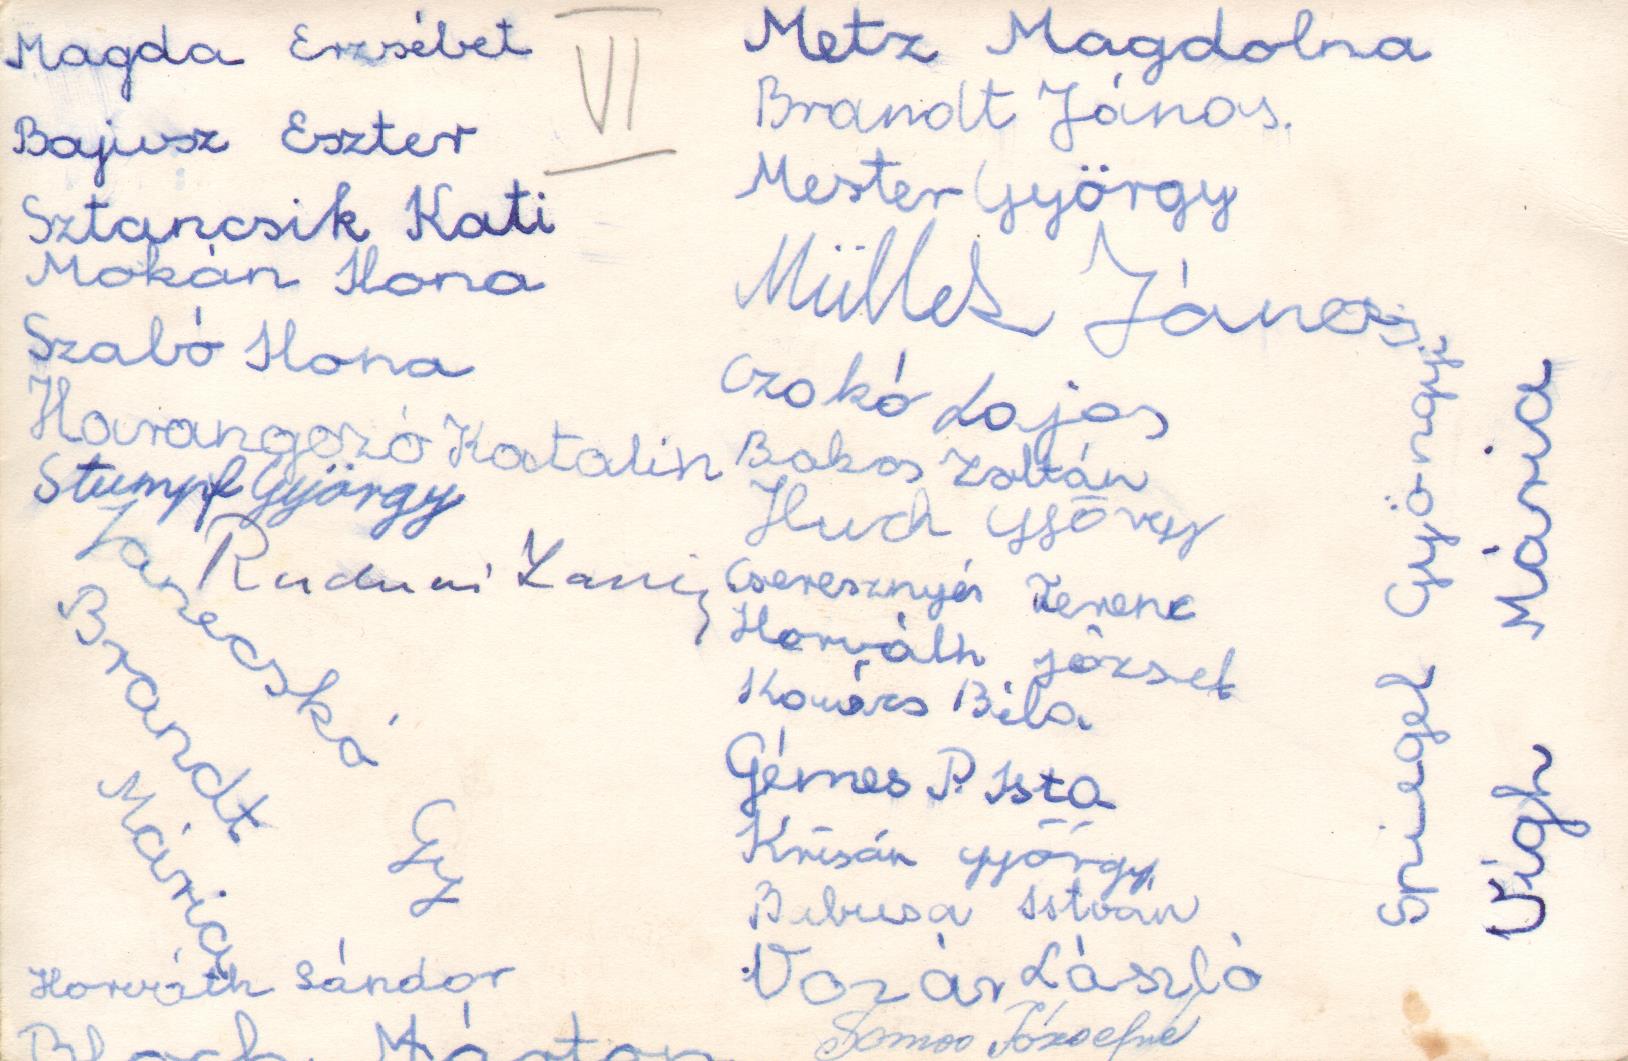 Magda Erzsébet
VI
Bajusz Eszter
Sztancsik Kati
Mokán Ilona
Szabó Ilona
Harangozó Katalin
Stumpf György
Zanecská Gy
Brandt Mária
Horváth Sándor
Bloch Márton
Metz Magdolna
Brandt János.
Mester György
Müller János
Czokó Lajos
Bakos Zoltán
Huch György
Cseresznyés Ferenc
Horváth József
Kovács Béla
Gémes P. Ista
Krisán György
Babusa István
Vozár László
Somos Józsefné
Spiegel Gyöngyi
Vigh Mária